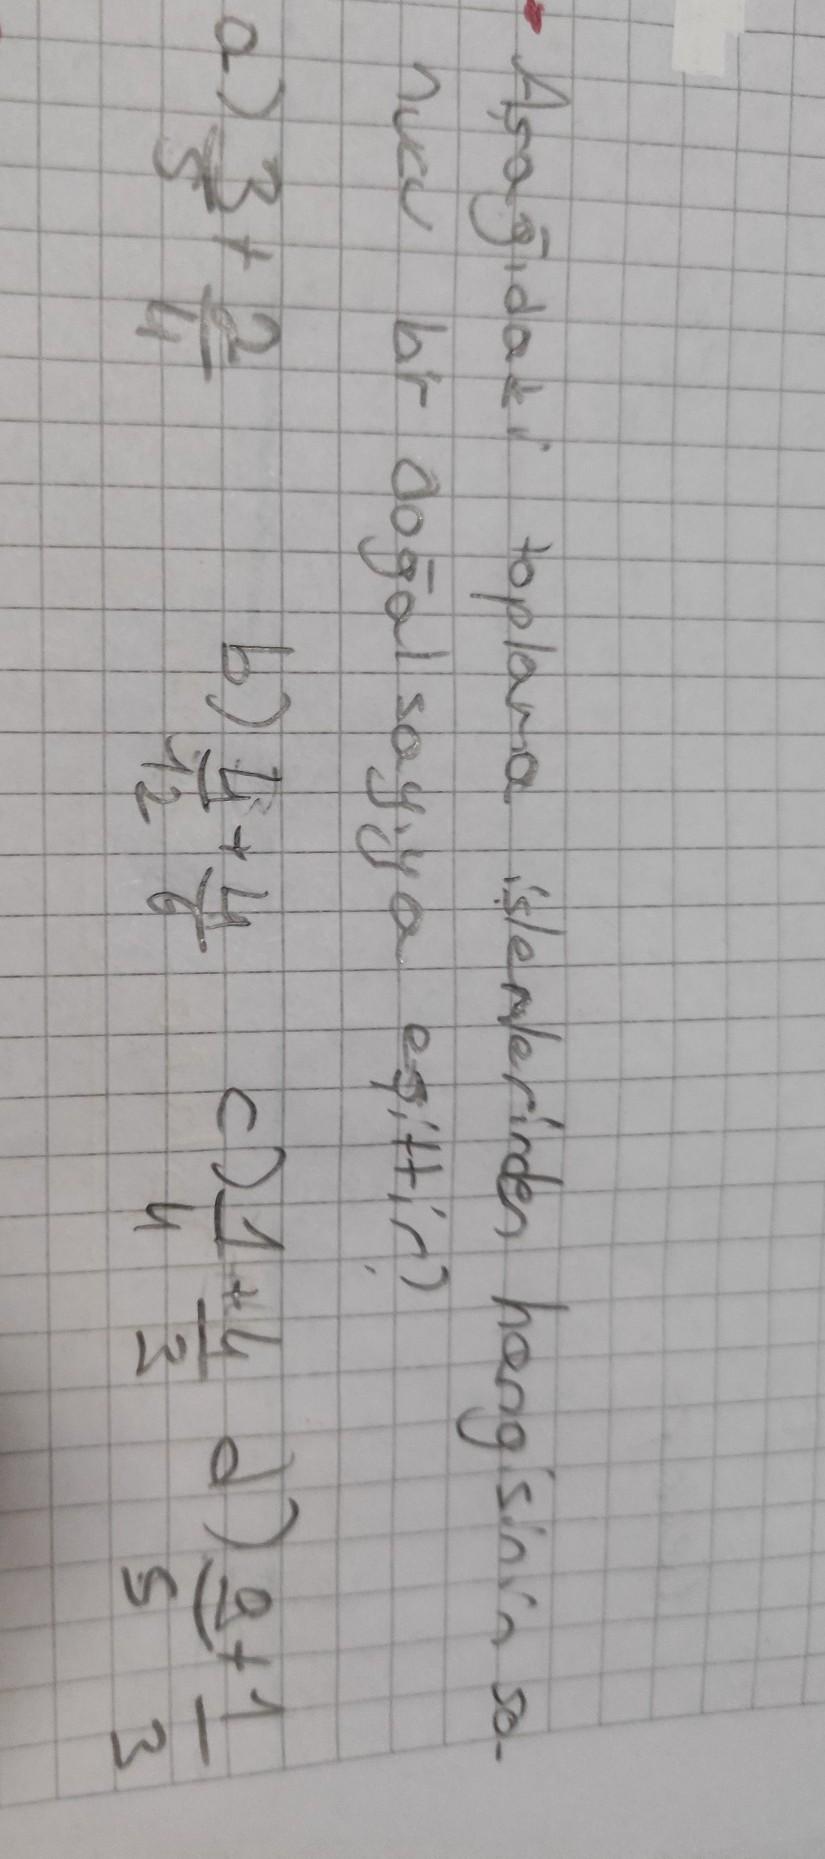 Aşağıdaki toplama işlemlerinden hangisinin so-
nucu bir doğal sayıya eşittir?
a) 3/5 + 2/4 b) 4/12 + 4/6 c) 1/4 + 4/3 d) 2/5 + 1/3